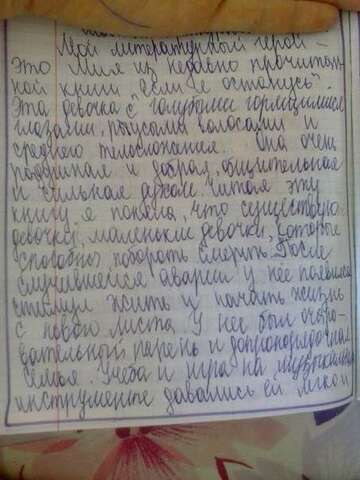 Мой литературный герой -
это Мия из недавно прочитан-
ной книги "Если я останусь".
Эта девочка с голубыми
глазами, русыми волосами и
среднего телосложения. Она очень
и добрая, общительная
и сильная духом. Читая эту
книгу я поняла, что существуют
девочки, маленькие девочки, которые
способны побороть смерть. После
случившейся аварии у неё появился
стимул жить и начать жизнь
с нового листа. У неё был очаро-
вательный парень и добропорядочная
семья. Учёба и игра на музыкальном
инструменте давались ей легко и